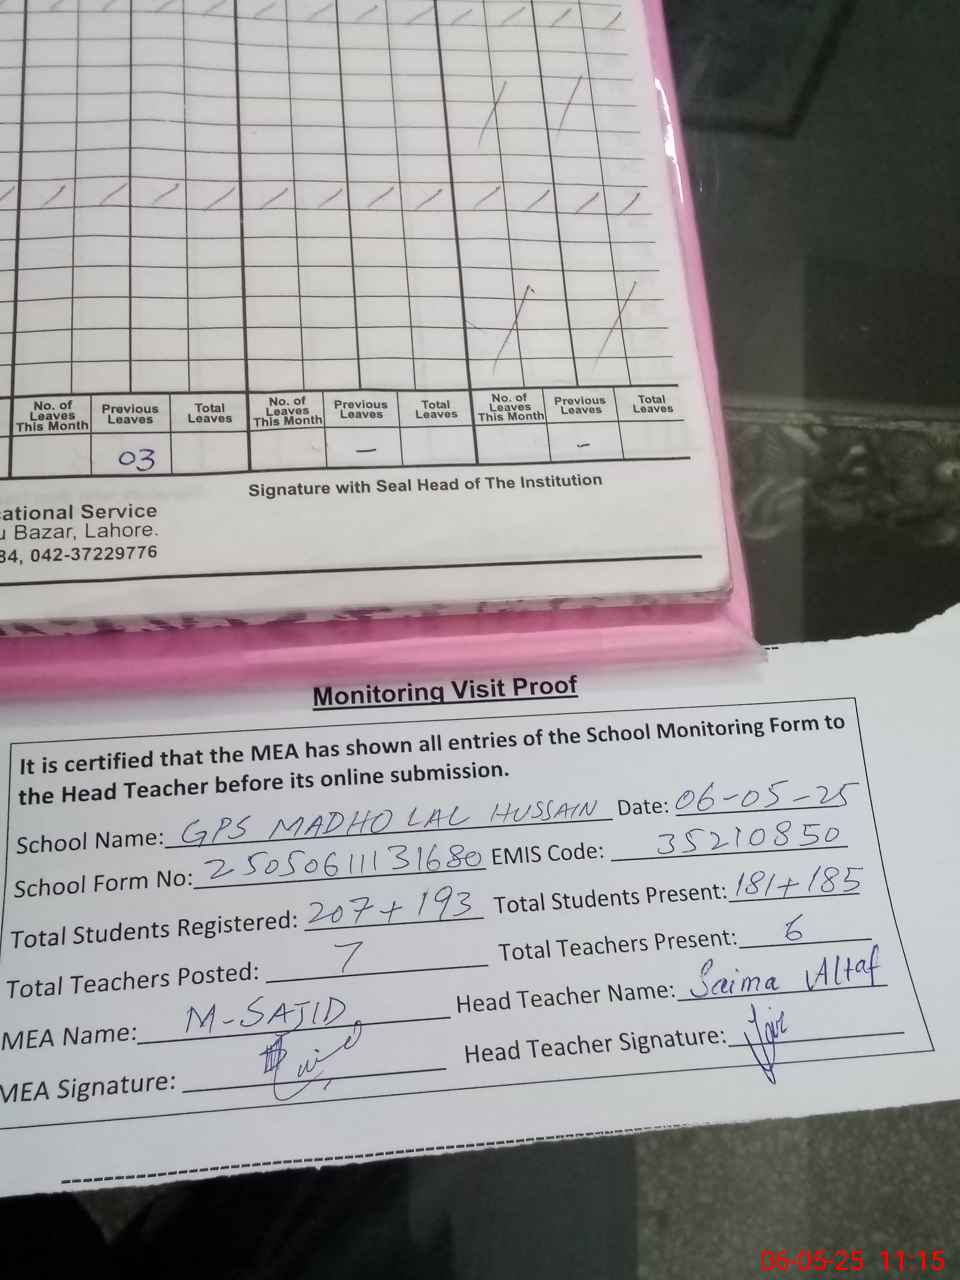 No. of Leaves This Month Previous Leaves Total Leaves No. of Leaves This Month Previous Leaves Total Leaves No. of Leaves This Month Previous Leaves Total Leaves
03 – –
Signature with Seal Head of The Institution
ational Service
u Bazar, Lahore.
84, 042-37229776
Monitoring Visit Proof
It is certified that the MEA has shown all entries of the School Monitoring Form to
the Head Teacher before its online submission.
School Name: GPS MADHO LAL HUSSAIN Date: 06-05-25
School Form No: 25050611131680 EMIS Code: 35210850
Total Students Registered: 207+193 Total Students Present: 181+185
Total Teachers Posted: 7 Total Teachers Present: 6
MEA Name: M-SAJID Head Teacher Name: Saima Altaf
MEA Signature: Head Teacher Signature:
06-05-25 11:15